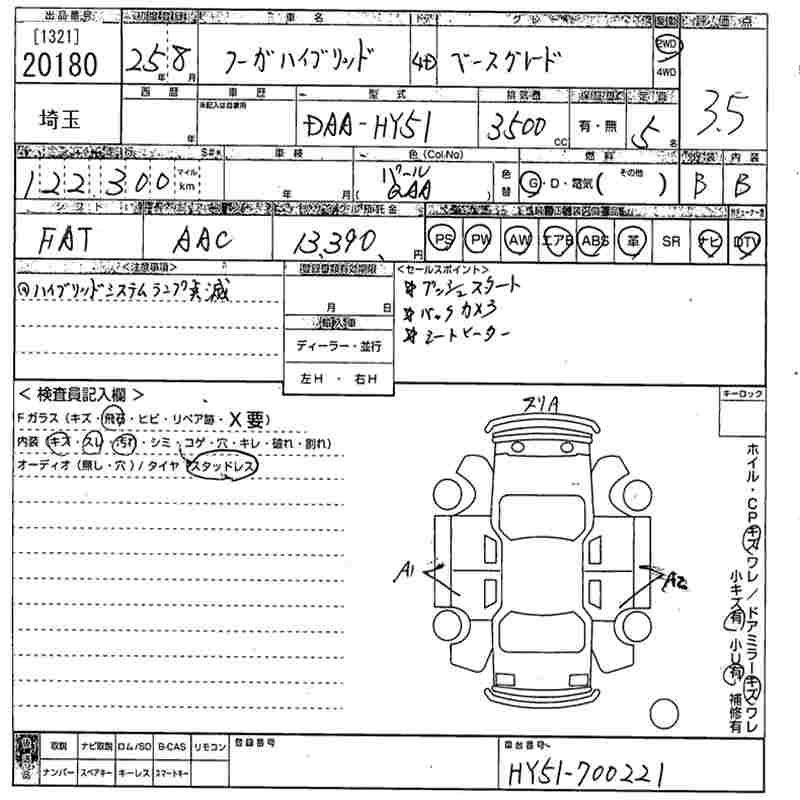 出品番号 車名 ドア グレード
[1321]
20180 25年 8月 フーガハイブリッド 4D ベースグレード 2WD 4WD 3.5
西暦 車歴 型式 排気量 定員
埼玉 年 未記入は自家用 DAA-HY51 3500cc 有・無 5名
車検 色(Col.No) 燃料 内装
122,300 マイル km 年 月 パール QAA 色替 G・D・電気( その他 ) B B
シフト
FAT AAC 13,390円 PS PW AW エアB ABS 革 SR ナビ DTV
<注意事項> 登録番号有効期限 <セールスポイント>
ハイブリッドシステムランプ点滅
プッシュスタート
月 日
バックカメラ
輸入車
シートヒーター
ディーラー・並行
左H ・ 右H
<検査員記入欄> キーロック
スリA
Fガラス(キズ・飛石・ヒビ・リペア跡・X要)
内装(キズ・スレ・汚れ・シミ・コゲ・穴・キレ・破れ・割れ)
オーディオ(無し・穴)/タイヤ スタッドレス
ホイル・CPキズワレ/ドアミラーキズワレ
小キズ有 小U有 補修有
A1 A2
取説 ナビ取説 ロム/SD B-CAS リモコン 登録番号 車台番号
ナンバー スペアキー キーレス スマートキー HY51-700221